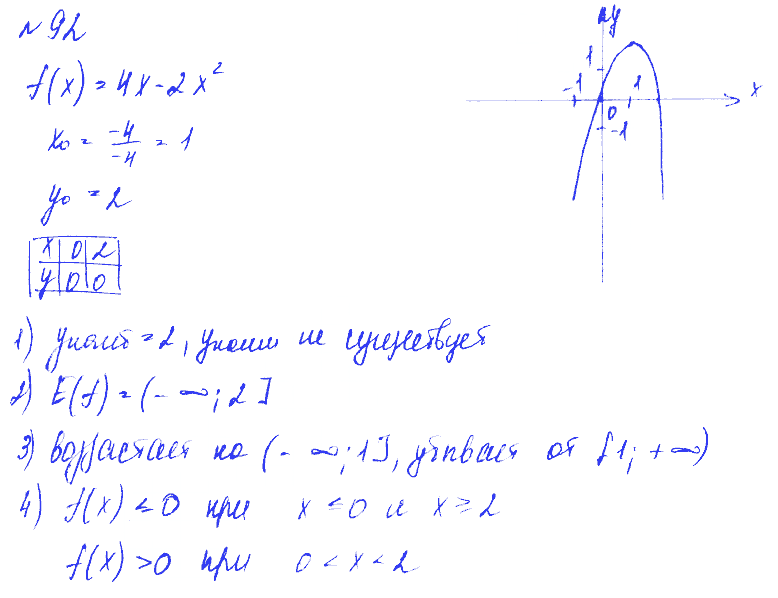 № 92
f(x) = 4x - 2x²
x₀ = -4/-4 = 1
y₀ = 2
x 0 2
y 0 0
y
1
-1 1 x
0
-1
1) yнаиб = 2, yнаим не существует
2) E(f) = (-∞; 2]
3) возрастает на (-∞; 1], убывает от [1; +∞)
4) f(x) ≤ 0 при x ≤ 0 и x ≥ 2
f(x) > 0 при 0 < x < 2